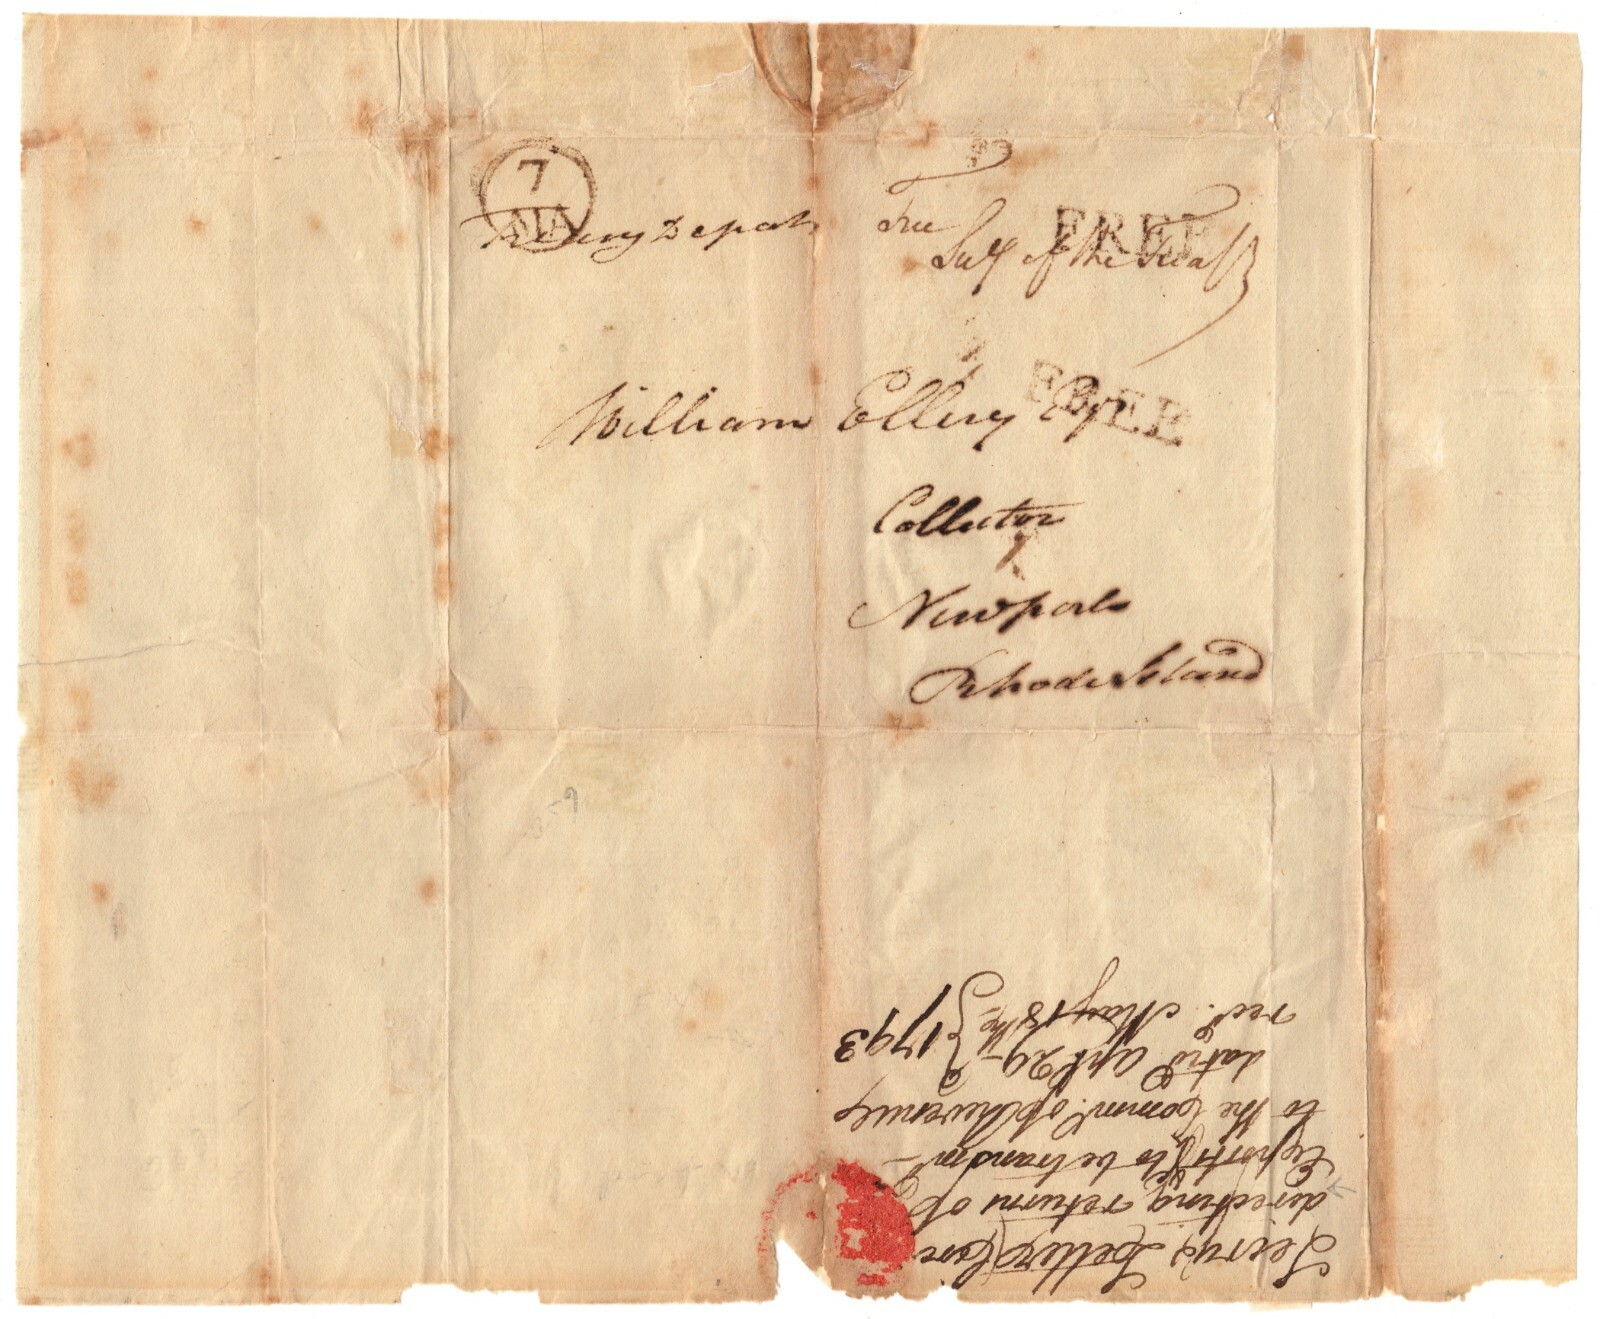 7
MA
Treasury Depart
Free
FREE
Secy of the Treasy
William Ellery Esqr
FREE
Collector
Newport
Rhode Island
Secry's Letters
directing returns of
Exports &c to be transmd
to the Commr. of Revenue
dated Apl. 29th } 1793
recd. May 18